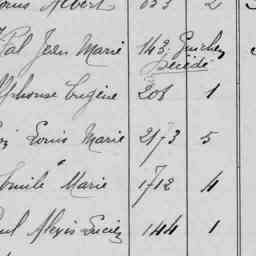 Albert 633 2
Pal Jean Marie 143 Guichen
Décédé
Alphonse Eugène 208 1
Louis Marie 2173 5
Emile Marie 1712 4
Paul Alexis Lucien 144 1